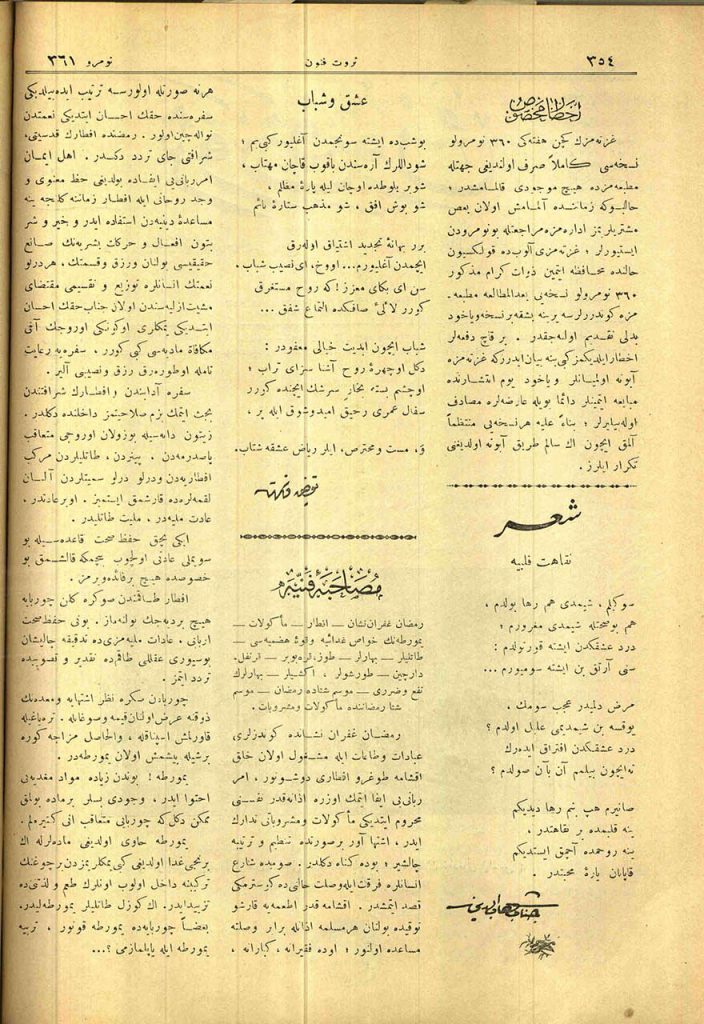 ٣٥٤
ثروت فنون
نومرو ٣٦١
اخطار مخصوص
غزته‌مزك كچن هفته‌كی ٣٦٠ نومرولو
نسخه‌سی كاملاً صرف اولندیغی جهتله
مطبعه‌مزده هیچ موجودی قالمامشدر ؛
حالبوكه زماننده آلمامش اولان بعض
مشتریلریمز اداره‌مزه مراجعتله بونومرودن
ایستیورلر ؛ غزته‌مزی آلوب‌ده قوللكسیون
حالنده محافظه ایتمین ذوات كرام مذكور
٣٦٠ نومرولو نسخه‌یی بعدالمطالعه مطبعه‌ـ
مزه كوندررلرسه یرینه بشقه برنسخه ویاخود
بدلی تقدیم اولنه‌جقدر . بر قاچ دفعه‌لر
اخطار ایلدیكمز كبی ینه بیان ایدرزكه غزته‌مزه
آبونه اولمیانلر و یاخود یوم انتشارنده
مبایعه ایتمینلر دائما بویله عارضه‌لره مصادف
اوله‌بیلیرلر ؛ بناءً علیه هرنسخه‌یی منتظماً
آلمق ایچون اك سالم طریق آبونه اولدیغنی
تكرار ایلرز .
شعر
نقاهت قلبیه
سوكیلم ، شیمدی هم رها بولدم ،
هم بوصحتله شیمدی مغرورم ؛
درد عشقكدن ایشته قورتولدم :
سنی آرتق بن ایشته سومیورم ...
مرض دلمیدر عجب سومك ،
یوقسه بن شیمدیمی علیل اولدم ؟
درد عشقكدن افتراق ایده‌رك
نه‌ایچون بیلمم آن بآن صولدم ؟
صانیرم هپ بنم رها دیدیكم
ینه قلبمده بر نقاهتدر ،
ینه روحمده آجیمق ایستدیكم
قاپانان یارهٔ محبتدر .
جناب شهاب‌الدین
عشق و شباب
بوشب‌ده ایشته سونجمدن آغلیور كبی‌یم ؛
شوداللرك آره‌سندن باقوب قاچان مهتاب ،
شو بر بلوطده اوچان لیله پارهٔ مظلم ،
شو بوش افق ، شو مذهب ستارهٔ نائم
برر بهانهٔ تجدید اشتیاق اوله‌رق
ایچمدن آغلیورم ... اووخ ، ای نصیب شباب .
سن ای بكای معزز ! كه روح مستغرق
كورر لآلیٔ صافكده التماع شفق ...
شباب ایچون ابدیت خیالی مفقودر :
دكل اوچهرهٔ روح آشنا سزای تراب ؛
اوچشم بستهٔ بخار سرشك ایچنده كورر
سفال عمری رحیق امیدوشوق ایله پر ،
و، مست ومحترص، ایلر ریاض عشقه شتاب.
توفیق فكرت
مصاحبهٔ فنیه
رمضان غفران‌نشان ــ افطار ــ مأكولات ــ
یمورطه‌نك خواص غدائیه وقوهٔ هضمیه‌سی ــ
طاتلیلر ــ بهارلر ــ طوز، قره‌بوبر ــ قرنفل،
دارچین ــ طورشولر ، اكشیلر ــ بهارلرك
نفع وضرری ــ موسم شتاده رمضان ــ موسم
شتا رمضاننده مأكولات ومشروبات .
رمضان غفران نشانده كوندزلری
عبادات وطاعات ایله مشغول اولان خلق
اقشامه طوغرو افطاری دوشونور ، امر
ربانی‌یی ایفا ایتمك اوزره اذانه‌قدر نفسنی
محروم ایتدیكی مأكولات ومشروباتی تدارك
ایدر ، اشتها آور برصورتده تنظیم و ترتیبه
چالیشیر ؛ بوده كناه دكلدر . صومیده شارع
انسانلره فرقت ایله‌وصلت حالنی‌ده كوسترمكی
قصد ایتمشدر . اقشامه قدر اطعمه‌یه قارشو
توقیده بولنان هرمسلمه اذانله برابر وصلته
مساعده اولنور ؛ اوده فقیرانه ، كبارانه ،
هرنه صورتله اولورسه ترتیب ایده‌بیلدیكی
سفره‌سنده حقك احسان ایتدیكی نعمتدن
نواله‌چین‌اولور . رمضنده افطارك قدسیتی،
شرافتی جای تردد دكلدر . اهل ایمان
امرربانی‌یی ایفاده بولدیغی حظ معنوی و
وجد روحانی ایله افطار زماننه كلنجه ینه
مساعدهٔ دینیه‌دن استفاده ایدر و خیر و شر
بتون افعال و حركات بشریه‌نك صانع
حقیقیسی بولنان ورزق وقسمتك ، هردرلو
نعمتك انسانلره توزیع و تقسیمی مقتضای
مشیت‌ازلیه‌سندن اولان جناب حقك احسان
ایتدیكی یمكلری اوكونكی اوروجك آنی
مكافاة مادیه‌سی كبی كورر ، سفره‌یه رعایت
تامه‌له اوطوره‌رق رزق ونصیبنی آلیر .
سفره آدابندن وافطارك شرافتندن
بحث ایتمك بزم صلاحیتمز داخلنده دكلدر .
زیتون دانه‌سیله بوزولان اوروجی متعاقب
پاصدرمه‌دن ، پینیردن ، طاتلیلردن مركب
افطاریه‌دن ودرلو درلو سمیتلردن آلنان
لقمه‌لره‌ده قارشمق ایستمیز . اوبرعادتدر ،
عادت ملیه‌در ، ملیت طاتلیدر .
ایكی بچق حفظ صحت قاعده‌سیله بو
سویملی عادتی اولچوب بیچمكه قالشمق بو
خصوصده هیچ برفائده‌ویرمز .
افطار طاقمندن صوكره كلن چوربایه
هیچ بردیه‌جك بولنه‌ماز . بونی حفظ صحت
اربابی ، عادات ملیه‌مزی‌ده تدقیقه چالیشان
بوسبوری عقللی طاقم‌ده تقدیر و تصویبده
تردد ایتمز .
چوربادن صكره نظر اشتهایه ومعده‌نك
ذوقنه عرض اولنان قیمه وسوغانله . تره‌یاغیله
قاورلمش اسپناقله ، والحاصل مزاجه كوره
برشیله پیشمش اولان یمورطه‌در .
یمورطه ! بوندن زیاده مواد مغدیه‌یی
احتوا ایدر ، وجودی بسلر برماده بولمق
ممكن دكل‌كه چوربایی متعاقب آنی كتیره‌لم .
یمورطه حاوی اولدیغی ماده‌لرله اك
برنجی غدا اولدیغی كبی یمكلریمزدن برچوغنك
تركیبنه داخل اولوب اونلرك طعم و لذتنی‌ده
تزییدایدر. اك كوزل طاتلیلر یمورطه‌لیدر.
بعضاً چوربایه‌ده یمورطه قونور ، تربیه
یمورطه ایله یاپیلمازمی ؟...